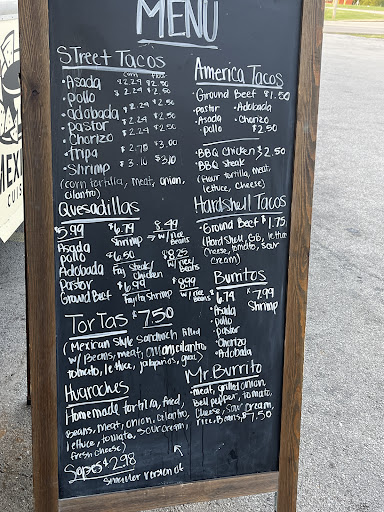 MENU
STreet Tacos
Corn Flour
·Asada $2.24 $2.50
·pollo $2.24 $2.50
·adobada $2.24 $2.50
·pastor $2.24 $2.50
·Chorizo $2.24 $2.50
·tripa $2.70 $3.00
·Shrimp $3.10 $3.10
(corn tortilla, meat, onion,
cilantro)
Quesadillas
$5.99 $6.79 8.49
Shrimp → w/ Rice
Beans
Asada
pollo $6.50 $8.25
Adobada Faj Steak/ w/ rice/
Chicken Beans
Pastor $6.99 8.99
Ground Beef Fajita Shrimp w/ Rice
Beans
TorTas $7.50
(Mexican Style Sandwich filled
w/ Beans, meat, onions, cilantro
tomato, lettuce, jalapeños, guac)
Huaroches
Homemade tortilla, fried,
Beans, meat, onion, cilantro,
lettuce, tomato, sour cream,
fresh cheese)
Sopes $2.98
Smaller version of
America Tacos
·Ground Beef $1.50
·pastor ·Adobada
·Asada ·Chorizo
·pollo $2.50
·BBQ Chicken $2.50
·BBQ Steak
(flour tortilla, meat,
lettuce, cheese)
Hardshell Tacos
·Ground Beef $1.75
(Hard Shell, GB, lettuce
Cheese, tomato, sour
cream)
Burritos
$6.79 $7.99
·Asada Shrimp
·pollo
·pastor
·Chorizo
·Adobada
Mr. Burrito
·meat, grilled onion
Bell pepper, tomato,
Cheese, Sour Cream,
rice, Beans, $7.50
MEXI
CUIS